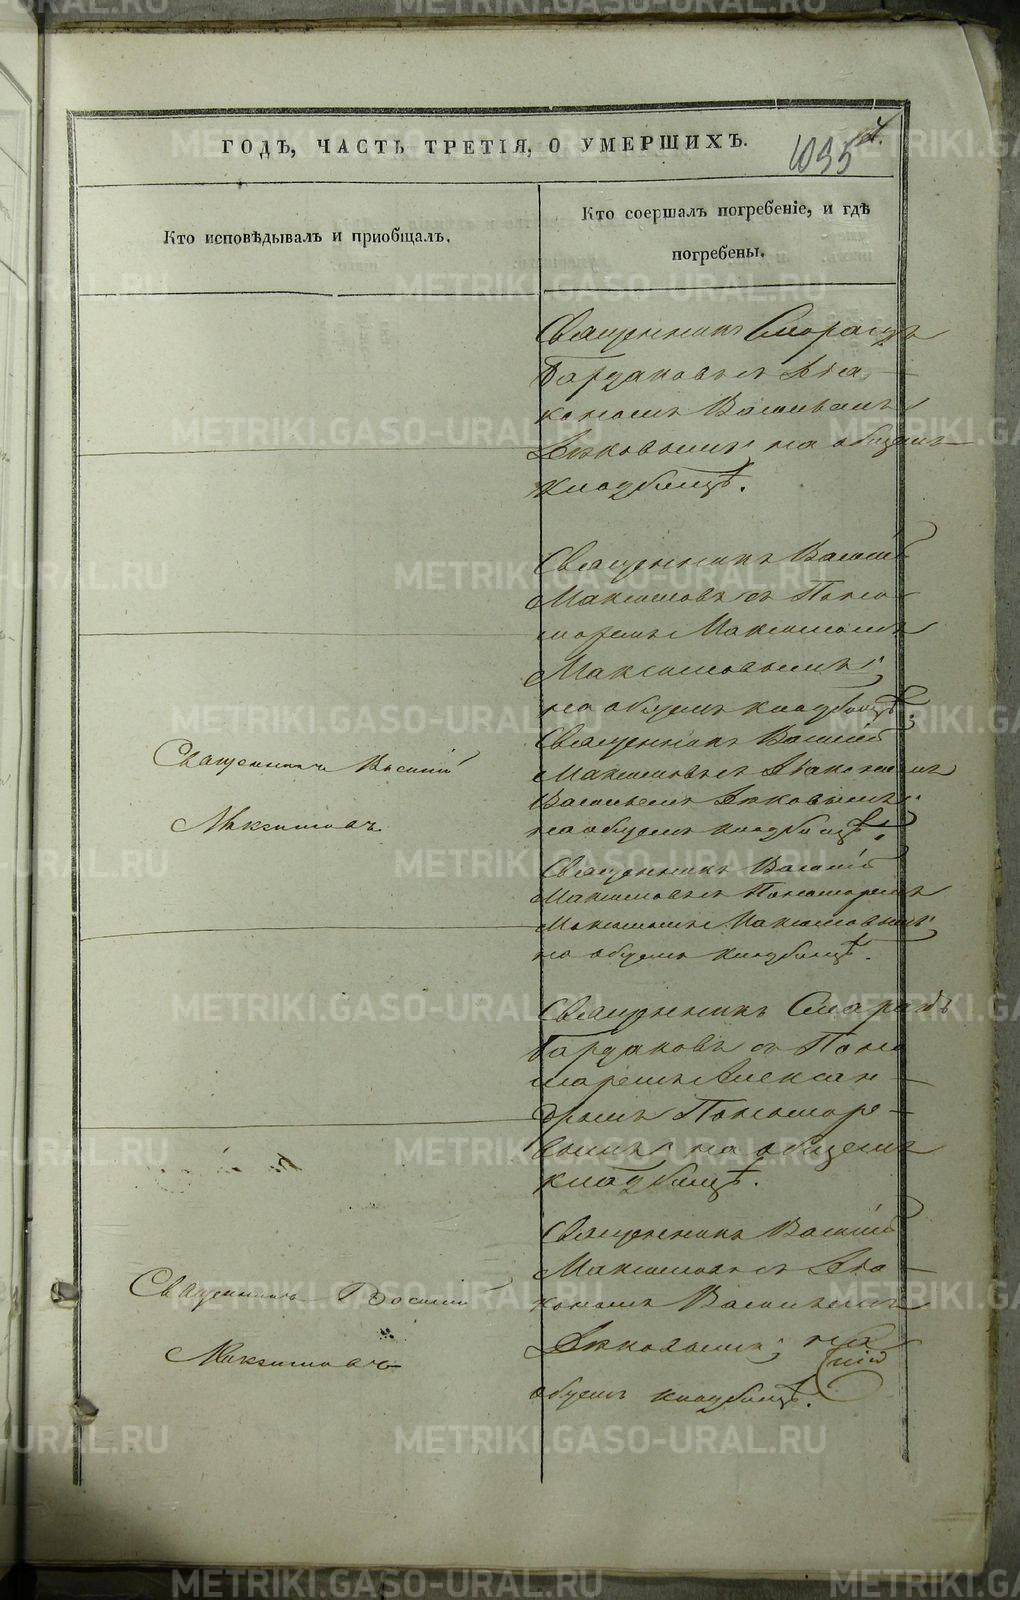 ГОДЪ, ЧАСТЬ ТРЕТІЯ, О УМЕРШИХЪ.
1035
Кто исповѣдывалъ и приобщалъ.
Кто соершалъ погребеніе, и гдѣ
погребены.
Священникъ Смарагдъ
Бардаковъ съ Діа
кономъ Васильемъ
на общемъ
кладбищѣ.
Священникъ Василій
Максимовъ съ Поно
моремъ Максимомъ
Максимовымъ;
на общемъ кладбищѣ.
Священникъ Василій
Максимовъ
Священникъ Василій
Максимовъ съ Діакономъ
Васильемъ
на общемъ кладбищѣ.
Священникъ Василій
Максимовъ съ Пономоремъ
Максимомъ Максимовымъ;
на общемъ кладбищѣ.
Священникъ Смарагдъ
Бардаковъ съ Поно
моремъ Алексан
дромъ Пономоре
вымъ, на общемъ
кладбищѣ.
Священникъ Василій
Максимовъ
Священникъ Василій
Максимовъ съ Діа
кономъ Васильемъ
на
общемъ кладбищѣ.
METRIKI.GASO-URAL.RU